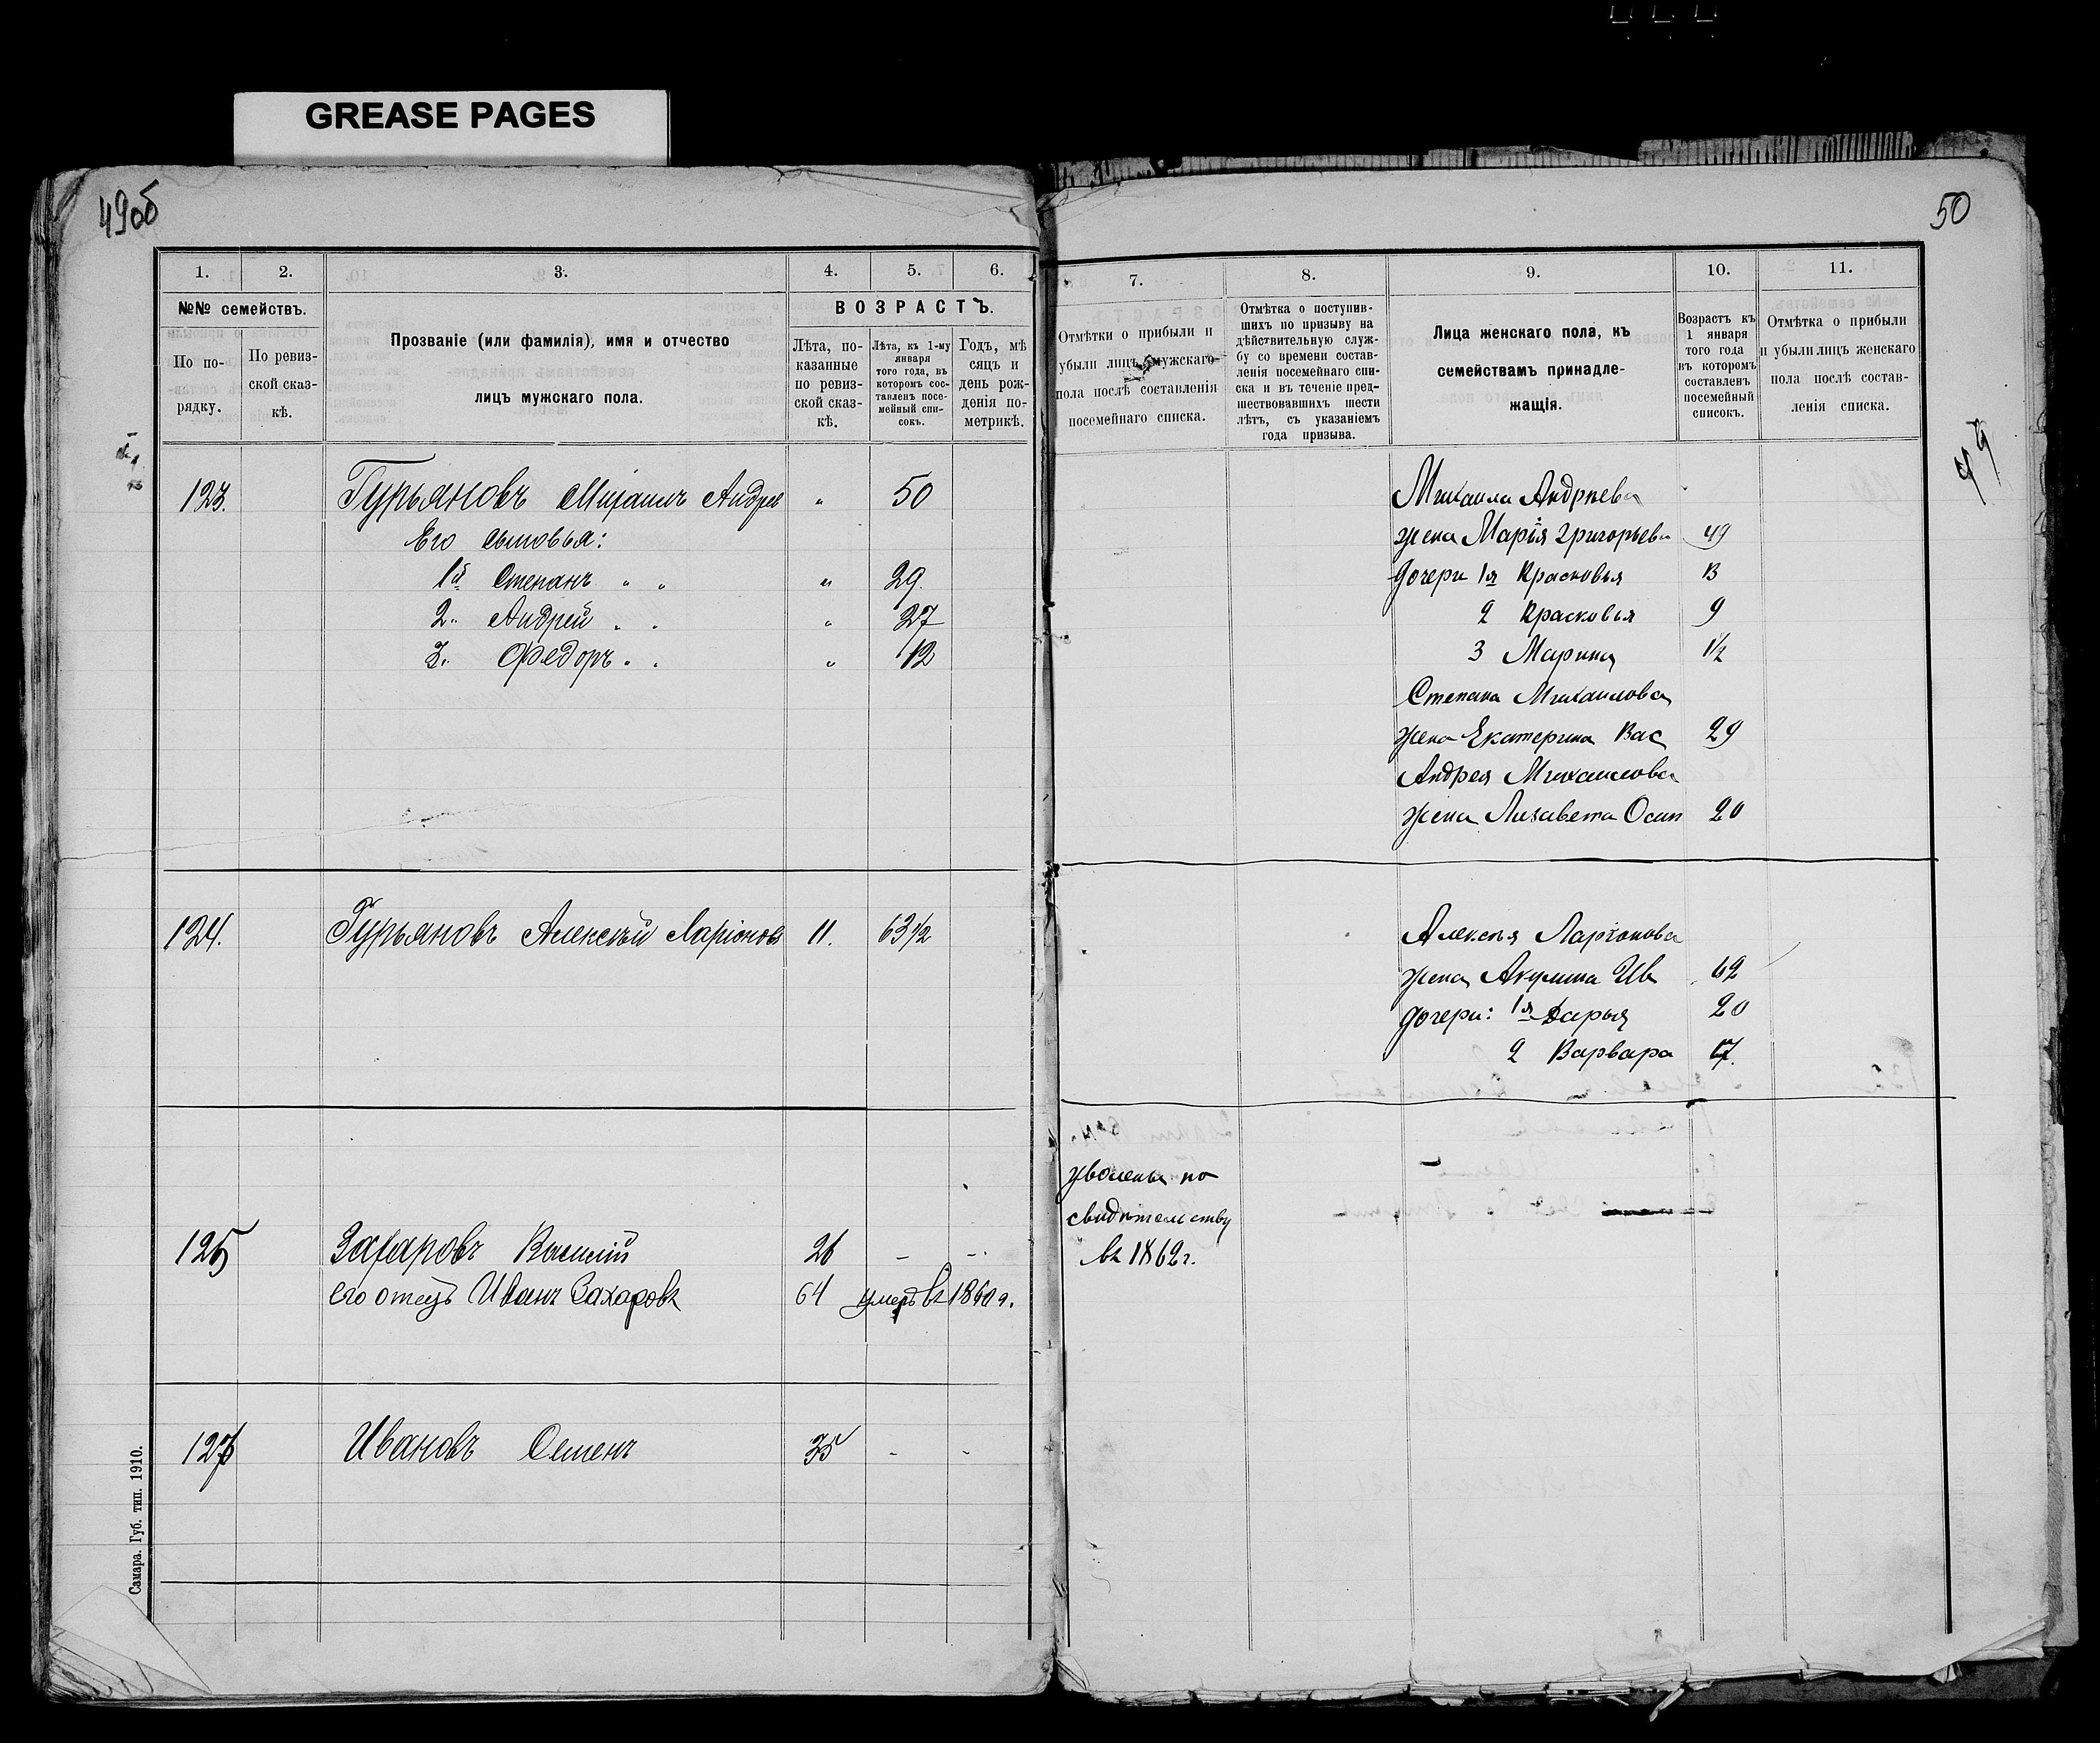 GREASE PAGES
49об
50
49
1.
2.
3.
4.
5.
6.
№№ семействъ.
По по-
рядку.
По ревиз-
ской сказ-
кѣ.
Прозваніе (или фамилія), имя и отчество
лицъ мужскаго пола.
ВОЗРАСТЪ.
Лѣта, по-
казанные
по ревиз-
ской сказ-
кѣ.
Лѣта, къ 1-му
января
того года, въ
которомъ сос-
тавленъ посе-
мейный спи-
сокъ.
Годъ, мѣ
сяцъ и
день рож-
денія по-
метрикѣ.
123. Гурьяновъ Михаилъ Андрев „ 50
Его сыновья:
1й Степанъ „ „ „ 29.
2. Андрей „ „ „ 27
3. Федоръ „ „ „ 12
124. Гурьяновъ Алексѣй Ларіоновъ 11. 63½
125 Захаровъ Василій 26 – –
его отецъ Иванъ Захаровъ 64 умеръ въ 1860 г.
Ивановъ Семенъ 35 - -
Самара. Губ. тип. 1910.
7.
8.
9.
10.
11.
Отмѣтки о прибыли и
убыли лицъ мужскаго
пола послѣ составленія
посемейнаго списка.
Отмѣтка о поступив-
шихъ по призыву на
дѣйствительную служ-
бу со времени состав-
ленія посемейнаго спи-
ска и въ теченіе пред-
шествовавшихъ шести
лѣтъ, съ указаніемъ
года призыва.
Лица женскаго пола, къ
семействамъ принадле-
жащія.
Возрастъ къ
1 января
того года
въ которомъ
составленъ
посемейный
списокъ.
Отмѣтка о прибыли
и убыли лицъ женскаго
пола послѣ состав-
ленія списка.
Михаила Андрѣева
жена Марія Григорьев 49
дочери 1я Прасковья 13
2 Прасковья 9
3 Марина 1½
Степана Михаилова
жена Екатерина Вас 29
Андрея Михаилова
жена Лизавета Осип 20
Алексѣя Ларіонова
жена Акулина Ив 62
дочери: 1я Дарья 20
2 Варвара 17.
уволены по
свидѣтельству
въ 1862 г.